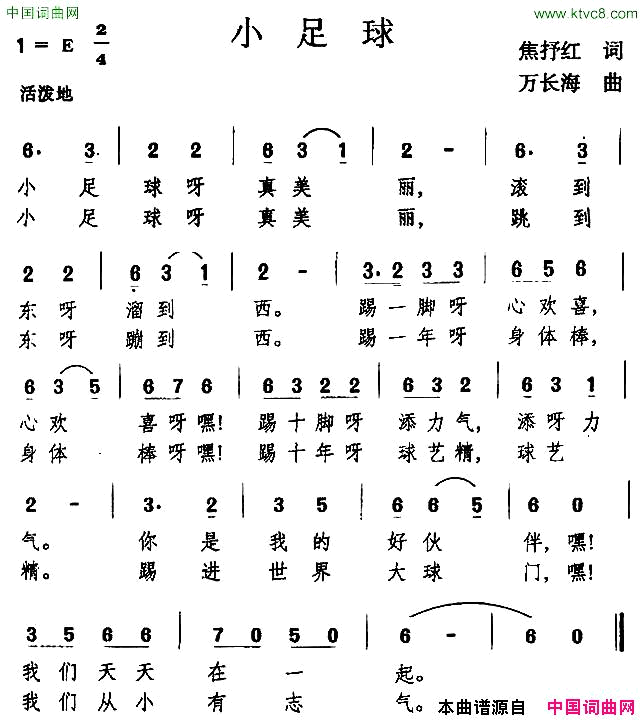 中国词曲网 www.ktvc8.com
小足球
1=E 2/4
焦抒红 词
万长海 曲
活泼地
6. 3 | 2 2 | 6 3 1 | 2 - | 6. 3 |
小足 球呀 真美 丽, 滚到
小足 球呀 真美 丽, 跳到
2 2 | 6 3 1 | 2 - | 3.2 3 3 | 6 5 6 |
东呀 溜到 西。 踢一脚呀 心欢喜,
东呀 蹦到 西。 踢一年呀 身体棒,
6 3 5 | 6 7 6 | 6 3 2 2 | 6 3 2 | 6 3 1 |
心欢 喜呀嘿! 踢十脚呀 添力气, 添呀力
身体 棒呀嘿! 踢十年呀 球艺精, 球艺
2 - | 3. 2 | 3 5 | 6 6 5 | 6 0 |
气。 你是 我的 好伙 伴,嘿!
精。 踢进 世界 大球 门,嘿!
3 5 6 6 | 7 0 5 0 | 6 - | 6 0 ‖
我们天天 在一 起。
我们从小 有志 气。
本曲谱源自 中国词曲网